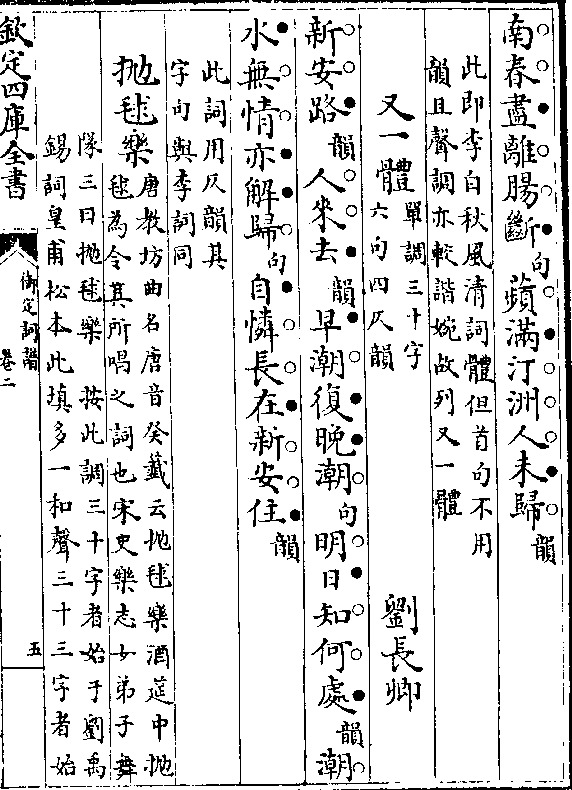 南春盡離腸斷句蘋滿汀洲人未歸韻
此即李白秋風清詞體但首句不用
韻且聲調亦較諧婉故列又一體
又一體單調三十字
六句四仄韻
劉長卿
新安路韻人來去韻早潮復晚潮句明日知何處韻潮
水無情亦解歸句自憐長在新安住韻
此詞用仄韻其
字句與李詞同
拋毬樂唐教坊曲名唐音癸籖云拋毬樂酒莚中拋
毬為令其所唱之詞也宋史樂志女弟子舞
隊三曰拋毬樂 按此調三十字者始于劉禹
錫詞皇甫松本此填多一和聲三十三字者始
欽定四庫全書
御定詞譜
卷二
五